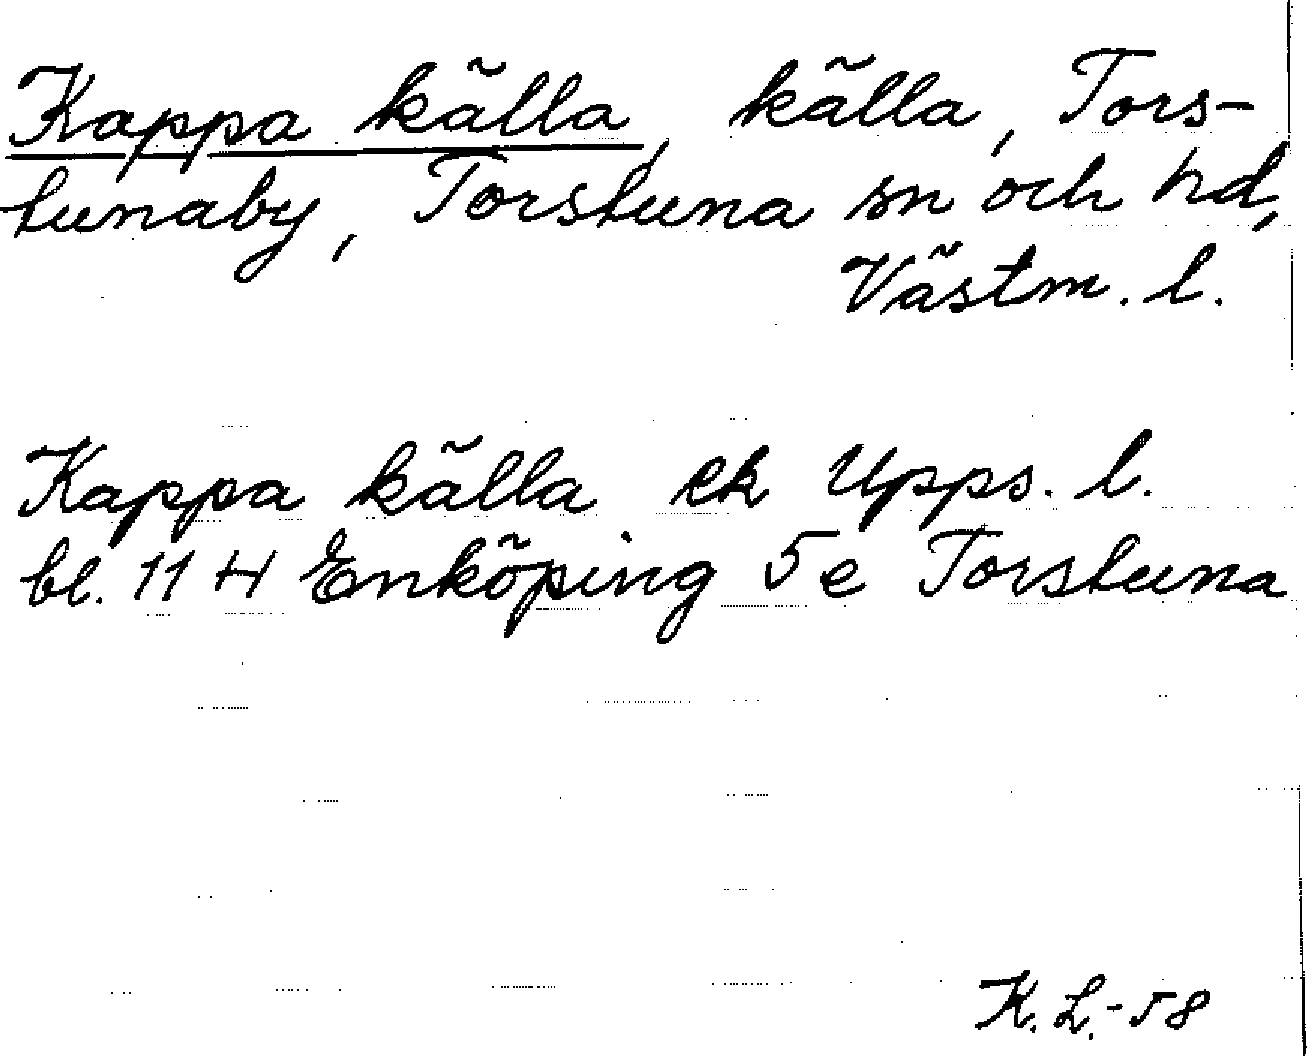 Kappa källa, källa, Tors-
tunaby, Torstuna sn och hd,
Västm. l.
Kappa källa ek Upps. l.
bl. 11 H Enköping 5e Torstuna
K. L.-58